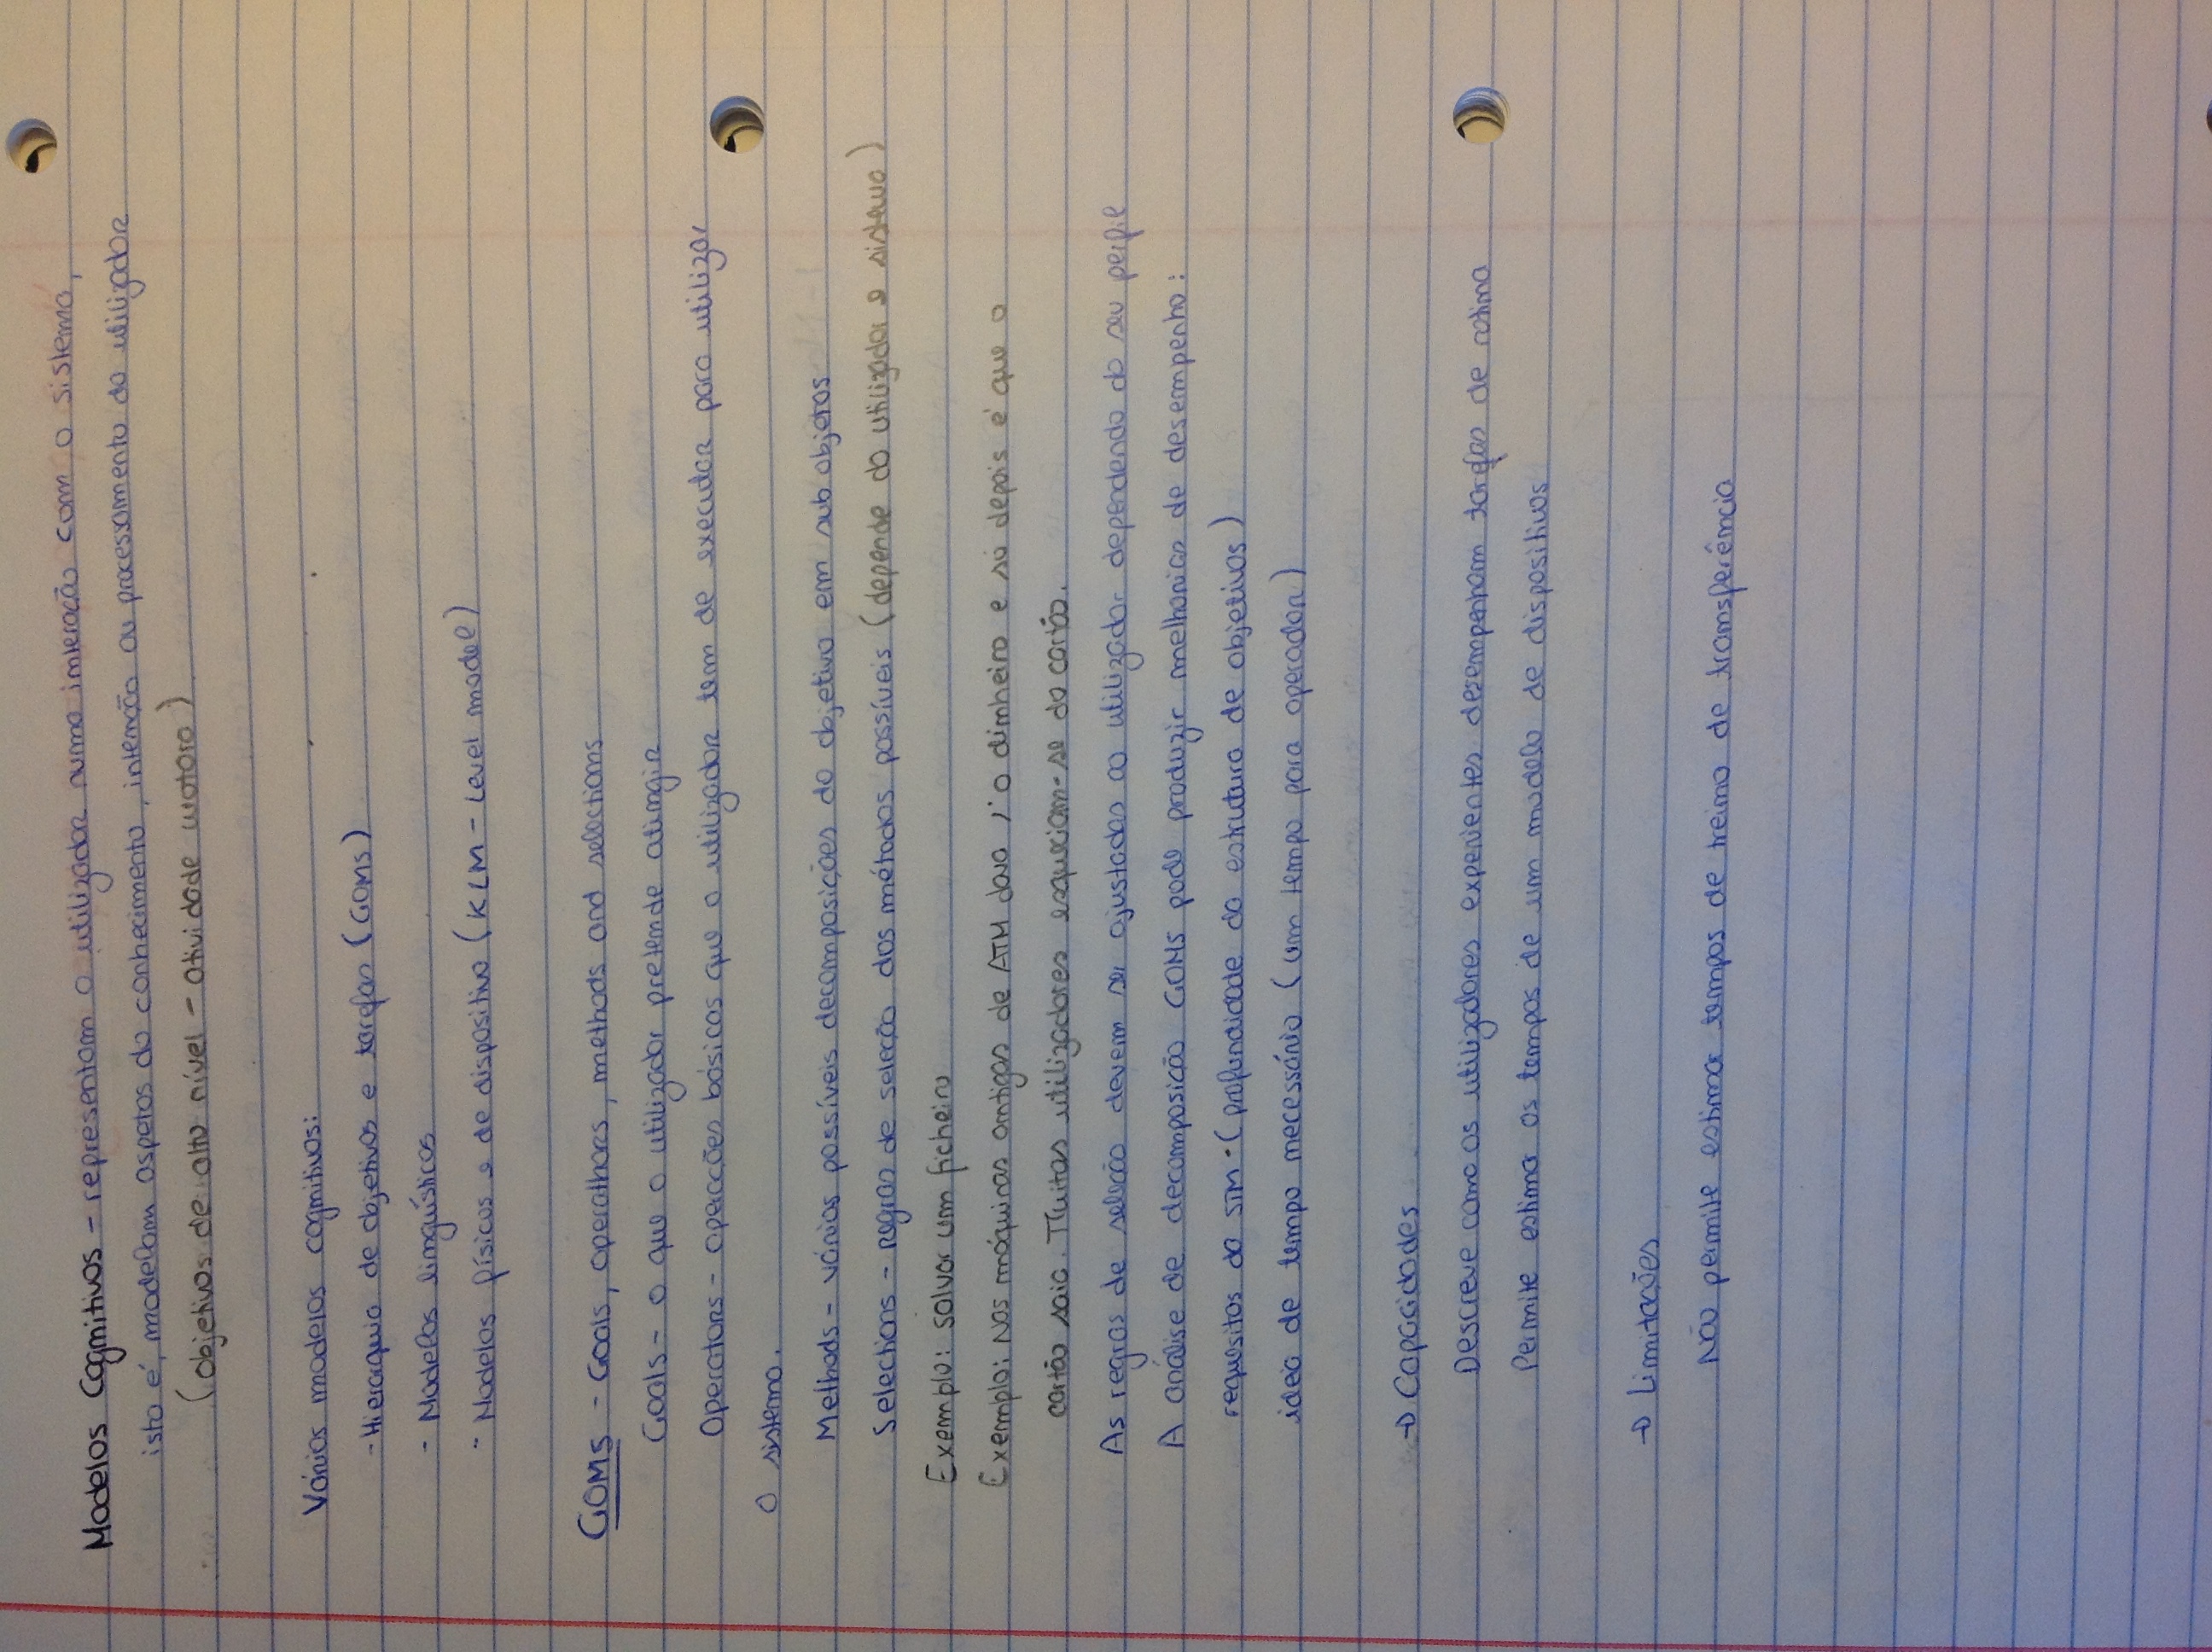 Modelos Cognitivos - representam o utilizador numa interação com o sistema,
isto é, modelam aspetos do conhecimento, intenção ou processamento do utilizador
(objetivos de alto nível - atividade motora)
Vários modelos cognitivos:
- Hierarquia de objetivos e tarefas (GOMS)
- Modelos linguísticos
- Modelos físicos e de dispositivo (KLM - Level model)
GOMS - Goals, operathors, methods and selections
Goals - o que o utilizador pretende atingir
Operators - operações básicas que o utilizador tem de executar para utilizar
o sistema.
Methods - vários possíveis decomposições do objetivo em sub objetos
Selections - regras de seleção dos métodos possíveis (depende do utilizador e sistema)
Exemplo: salvar um ficheiro
Exemplo: Nas máquinas antigas de ATM dava 1º o dinheiro e só depois é que o
cartão saia. Muitas utilizadores esqueciam-se do cartão.
As regras de seleção devem ser ajustadas ao utilizador dependendo do seu perfil
A análise de decomposição GOMS pode produzir melhorias de desempenho:
requisitos da STM - (profundidade da estrutura de objetivos)
ideia de tempo necessário (um tempo para operador)
→ Capacidades
Descreve como os utilizadores experientes desempenham tarefas de rotina
Permite estimar os tempos de um modelo de dispositivos
→ Limitações
Não permite estimar tempos de treino de transferência